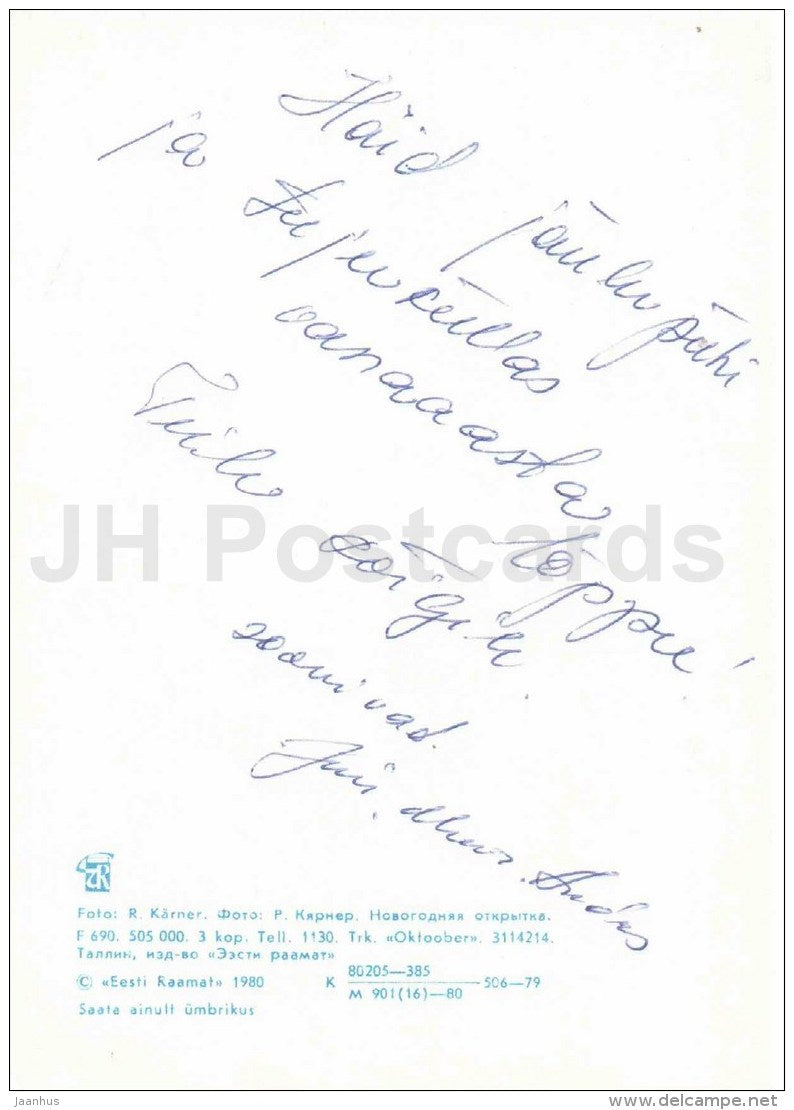 Häid jõulupühi
ja tujuküllast
vanaaasta lõppu!
Teile kõigile
soovivad.
Jüri, Andres
JH Postcards
Foto: R. Kärner. Фото: Р. Кярнер. Новогодняя открытка.
F 690. 505 000. 3 kop. Tell. 1130. Trk. «Oktoober». 3114214.
Таллин, изд-во «Ээсти раамат»
© «Eesti Raamat» 1980 К 80205—385 506—79
М 901(16)—80
Saata ainult ümbrikus
Jaanhus
www.delcampe.net